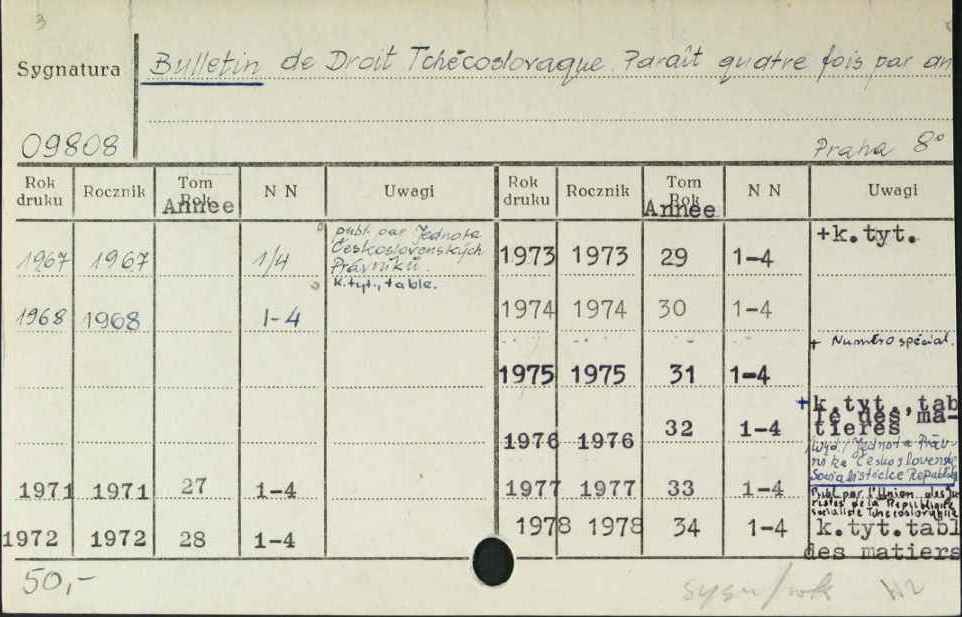 3
Sygnatura Bulletin de Droit Tchécoslovaque. Paraît quatre fois par an
09808 Praha 8°
Rok druku Rocznik Tom Rok Annee N N Uwagi Rok druku Rocznik Tom Rok Annee N N Uwagi
publ. par Jednota
Československých
Právníků.
k.tyt., table.
1967 1967 1/4
1968 1968 1-4
1971 1971 27 1-4
1972 1972 28 1-4
+k.tyt.
1973 1973 29 1-4
1974 1974 30 1-4
+ Numéro spécial.
1975 1975 31 1-4
+k.tyt.,tab
le des ma-
tieres
1976 1976 32 1-4
Jednota Práv-
níků Českosloven
Socialistické Republiky
1977 1977 33 1-4
Publ. par l'Union des Ju
ristes de la République
socialiste Tchécoslovaque
1978 1978 34 1-4 k.tyt.tabl
des matiers
50,-
sygn/rok